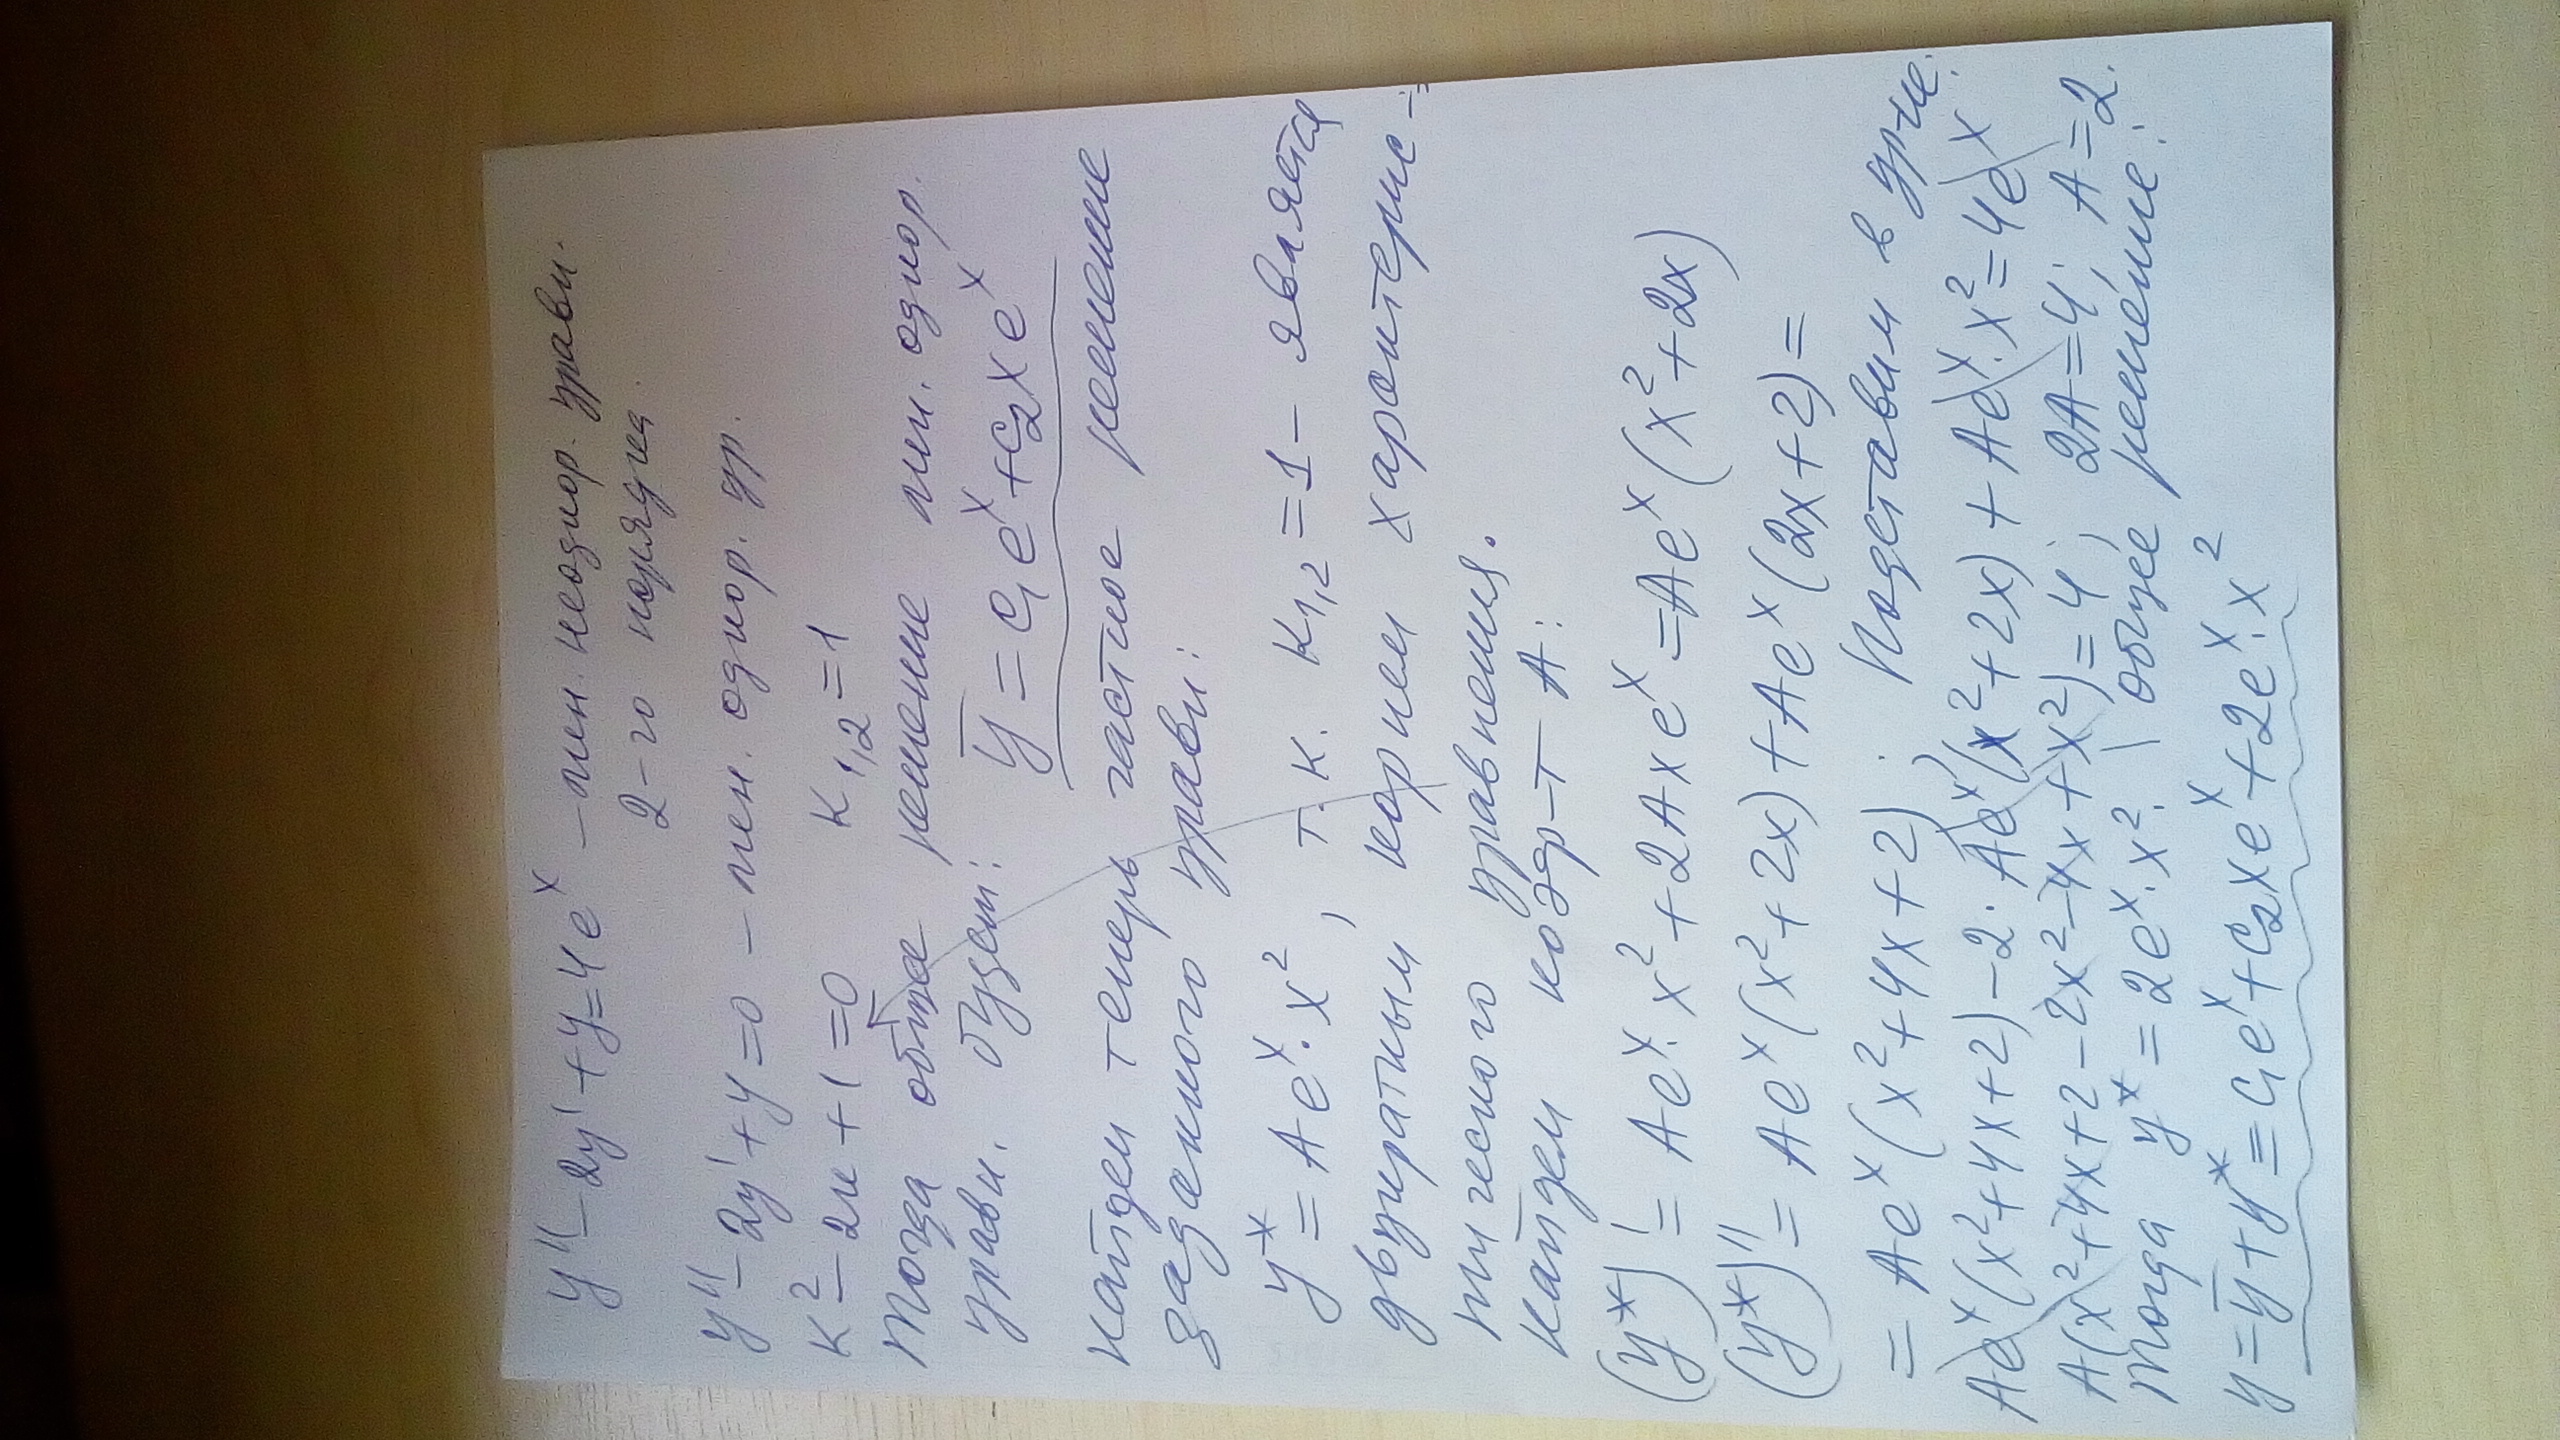 y'' - 2y' + y = 4e^x – лин. неоднор. уравн.
2-го порядка.
y'' - 2y' + y = 0 – лин. однор. ур.
k² - 2k + 1 = 0 k₁,₂ = 1
Тогда общее решение лин. однор.
уравн. будет: ȳ = C₁e^x + C₂xe^x
Найдем теперь частное решение
заданного уравн:
y* = Ae^x · x², т.к. k₁,₂ = 1 – является
двукратным корнем характерис-
тического уравнения.
Найдем коэф-т А:
(y*)' = Ae^x · x² + 2Axe^x = Ae^x (x² + 2x)
(y*)'' = Ae^x (x² + 2x) + Ae^x (2x + 2) =
= Ae^x (x² + 4x + 2). Подставим в ур-ие:
Ae^x (x² + 4x + 2) - 2 · Ae^x (x² + 2x) + Ae^x · x² = 4e^x
A(x² + 4x + 2 - 2x² - 4x + x²) = 4; 2A = 4; A = 2.
Тогда y* = 2e^x · x². | общее решение:
y = ȳ + y* = C₁e^x + C₂xe^x + 2e^x · x²